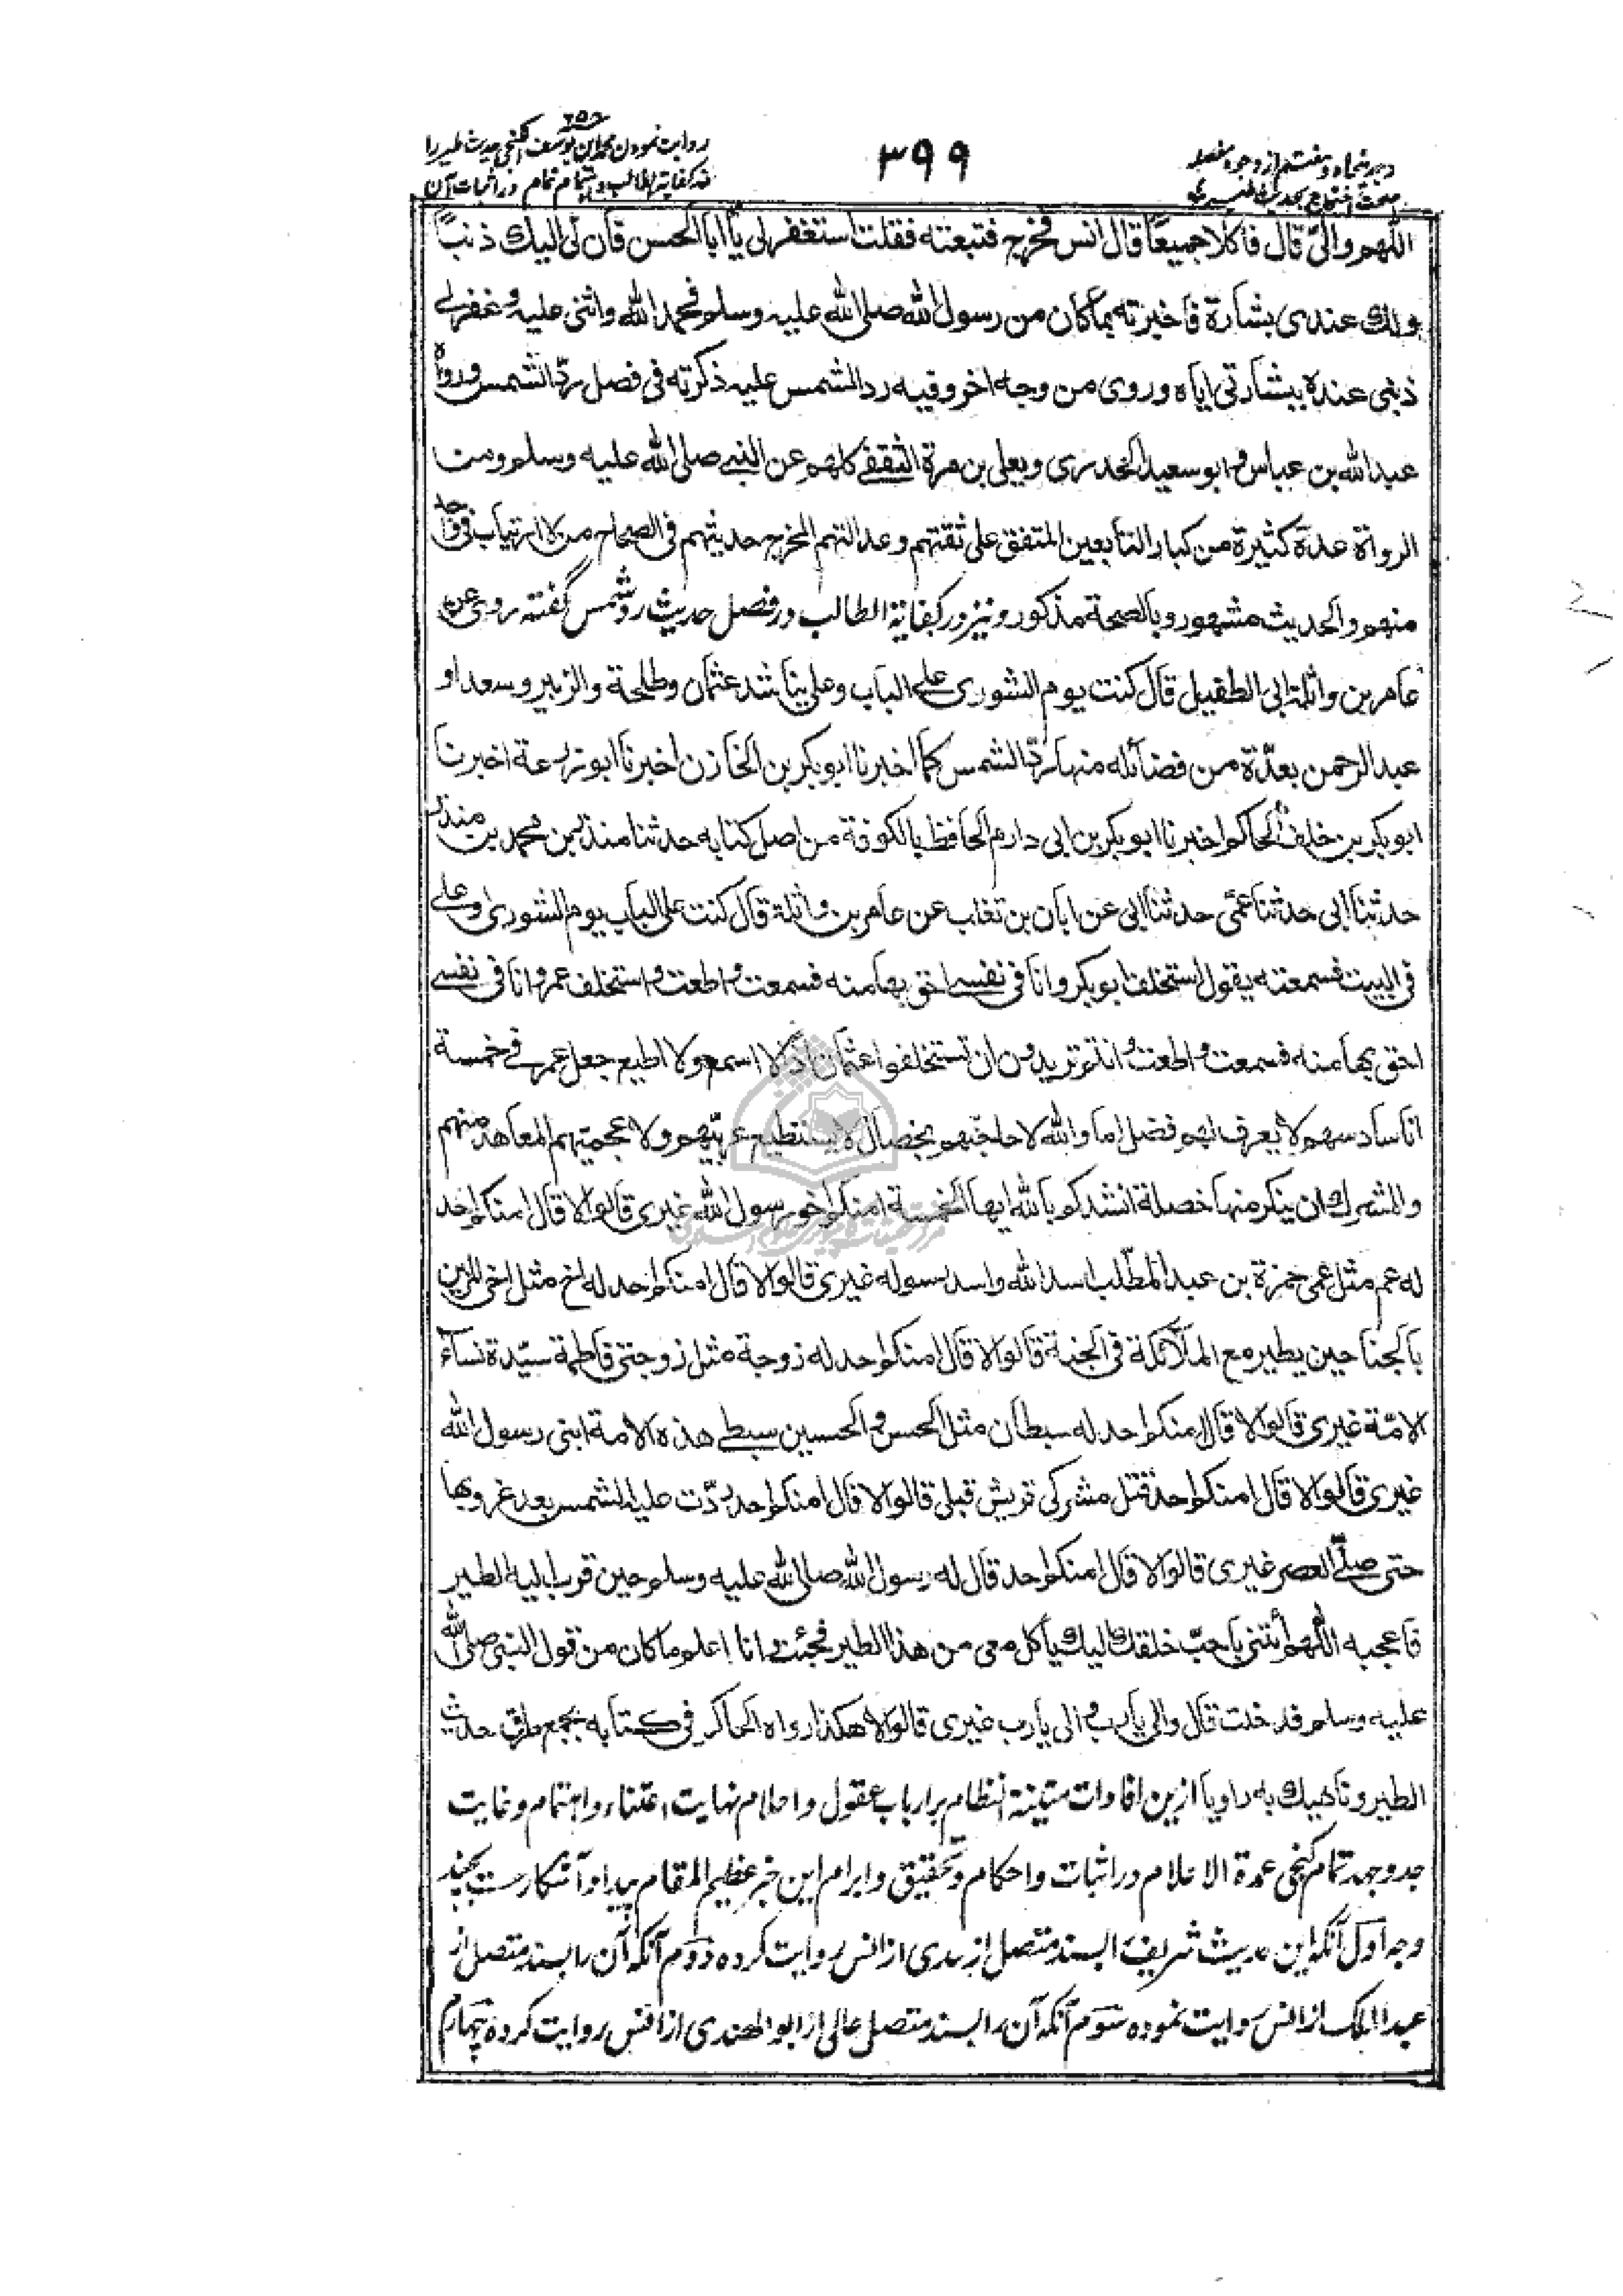 وجه پنجاه و هفتم از وجوه مفصله
صحت احتجاج بحديث طير
٣٩٩
٦٥٨
روايت نمودن محمد بن يوسف الكنجي حديث طير را
در كفاية الطالب و اهتمام تمام در اثبات آن
اللهم والىّ قال فاكلا جميعًا قال انس فخرج فتبعته فقلت استغفر لى يا ابا الحسن فان لى اليك ذنبًا
ولك عندى بشارة فاخبرته بما كان من رسول الله صلى الله عليه وسلم فحمد الله واثنى عليه و غفر لى
ذنبى عنده ببشارتى اياه وروى من وجه اخر وفيه رد الشمس عليه ذكرته فى فصل ردّ الشمس ورواه
عبد الله بن عباس و ابو سعيد الخدرى ويعلى بن مرة الثقفى كلهم عن النبى صلى الله عليه وسلم ومن
الرواة عدة كثيرة من كبار التابعين المتفق على ثقتهم وعدالتهم المخرج حديثهم فى الصحاح من لا ارتياب فى واحد
منهم والحديث مشهور وبالصحة مذكور و نيز در كفاية الطالب در فصل حديث رد شمس گفته روى عن
عامر بن واثلة ابى الطفيل قال كنت يوم الشورى على الباب وعلى يناشد عثمان وطلحة والزبير وسعدا و
عبد الرحمن بعدّة من فضائله منها ردّ الشمس كما اخبرنا ابو بكر بن الخازن اخبرنا ابو زرعة اخبرنا
ابو بكر بن خلف الحاكم اخبرنا ابو بكر بن ابى دارم الحافظ بالكوفة من اصل كتابه حدثنا منذر بن محمد بن منذر
حدثنا ابى حدثنا عمى حدثنا ابى عن ابان بن تغلب عن عامر بن واثلة قال كنت على الباب يوم الشورى وعلى
فى البيت فسمعته يقول استخلف ابو بكر وانا فى نفسى احق بها منه فسمعت و اطعت و استخلف عمر وانا فى نفسى
احق بها منه فسمعت و اطعت و انتم تريدون ان تستخلفوا عثمان اذا لا اسمع ولا اطيع جعل عمر فى خمسة
انا سادسهم لا يعرف لهم فضل اما والله لاحاجنهم بخصال لا يستطيع عربيّهم ولا عجميتهم المعاهد منهم
والمشرك ان ينكر منها خصلة انشدكم بالله ايها الخمسة امنكم اخو رسول الله غيرى قالوا لا قال امنكم احد
له عم مثل عمى حمزة بن عبد المطّلب اسد الله واسد رسوله غيرى قالوا لا قال امنكم احد له اخ مثل اخى المزين
بالجناحين يطير مع الملآئكة فى الجنة قالوا لا قال امنكم احد له زوجة مثل زوجتى فاطمة سيّدة نسآء
الامّة غيرى قالوا لا قال امنكم احد له سبطان مثل الحسن و الحسين سبطى هذه الامة ابنى رسول الله
غيرى قالوا لا قال امنكم احد قتل مشركى قريش قبلى قالوا لا قال امنكم احد ردّت عليه الشمس بعد غروبها
حتى صلّى العصر غيرى قالوا لا قال امنكم احد قال له رسول الله صلى الله عليه وسلم حين قرب اليه الطير
فاعجبه اللهم أئتنى باحبّ خلقك اليك يأكل معى من هذا الطير فجئت وانا اعلم ما كان من قول النبى صلى الله
عليه وسلم فدخلت قال والى يارب والى يارب غيرى قالوا لا هكذا رواه الحاكم فى كتابه بجمع طرق حديث
الطير وناهيك به راويا ازين افادات متينة النظام بر ارباب عقول و احلام نهايت اعتناء و اهتمام و غايت
جد و جهد تمام كنجى عمدة الاعلام در اثبات و احكام و تحقيق و ابرام اين خبر عظيم المقام پيدا و آشكارست بچند
وجه اوّل آنكه اين حديث شريف را بسند متصل از سدى از انس روايت كرده دوم آنكه آن را بسند متصل از
عبد الملك از انس روايت نموده سوم آنكه آن را بسند متصل عالى از ابو الهندى از انس روايت كرده چهارم